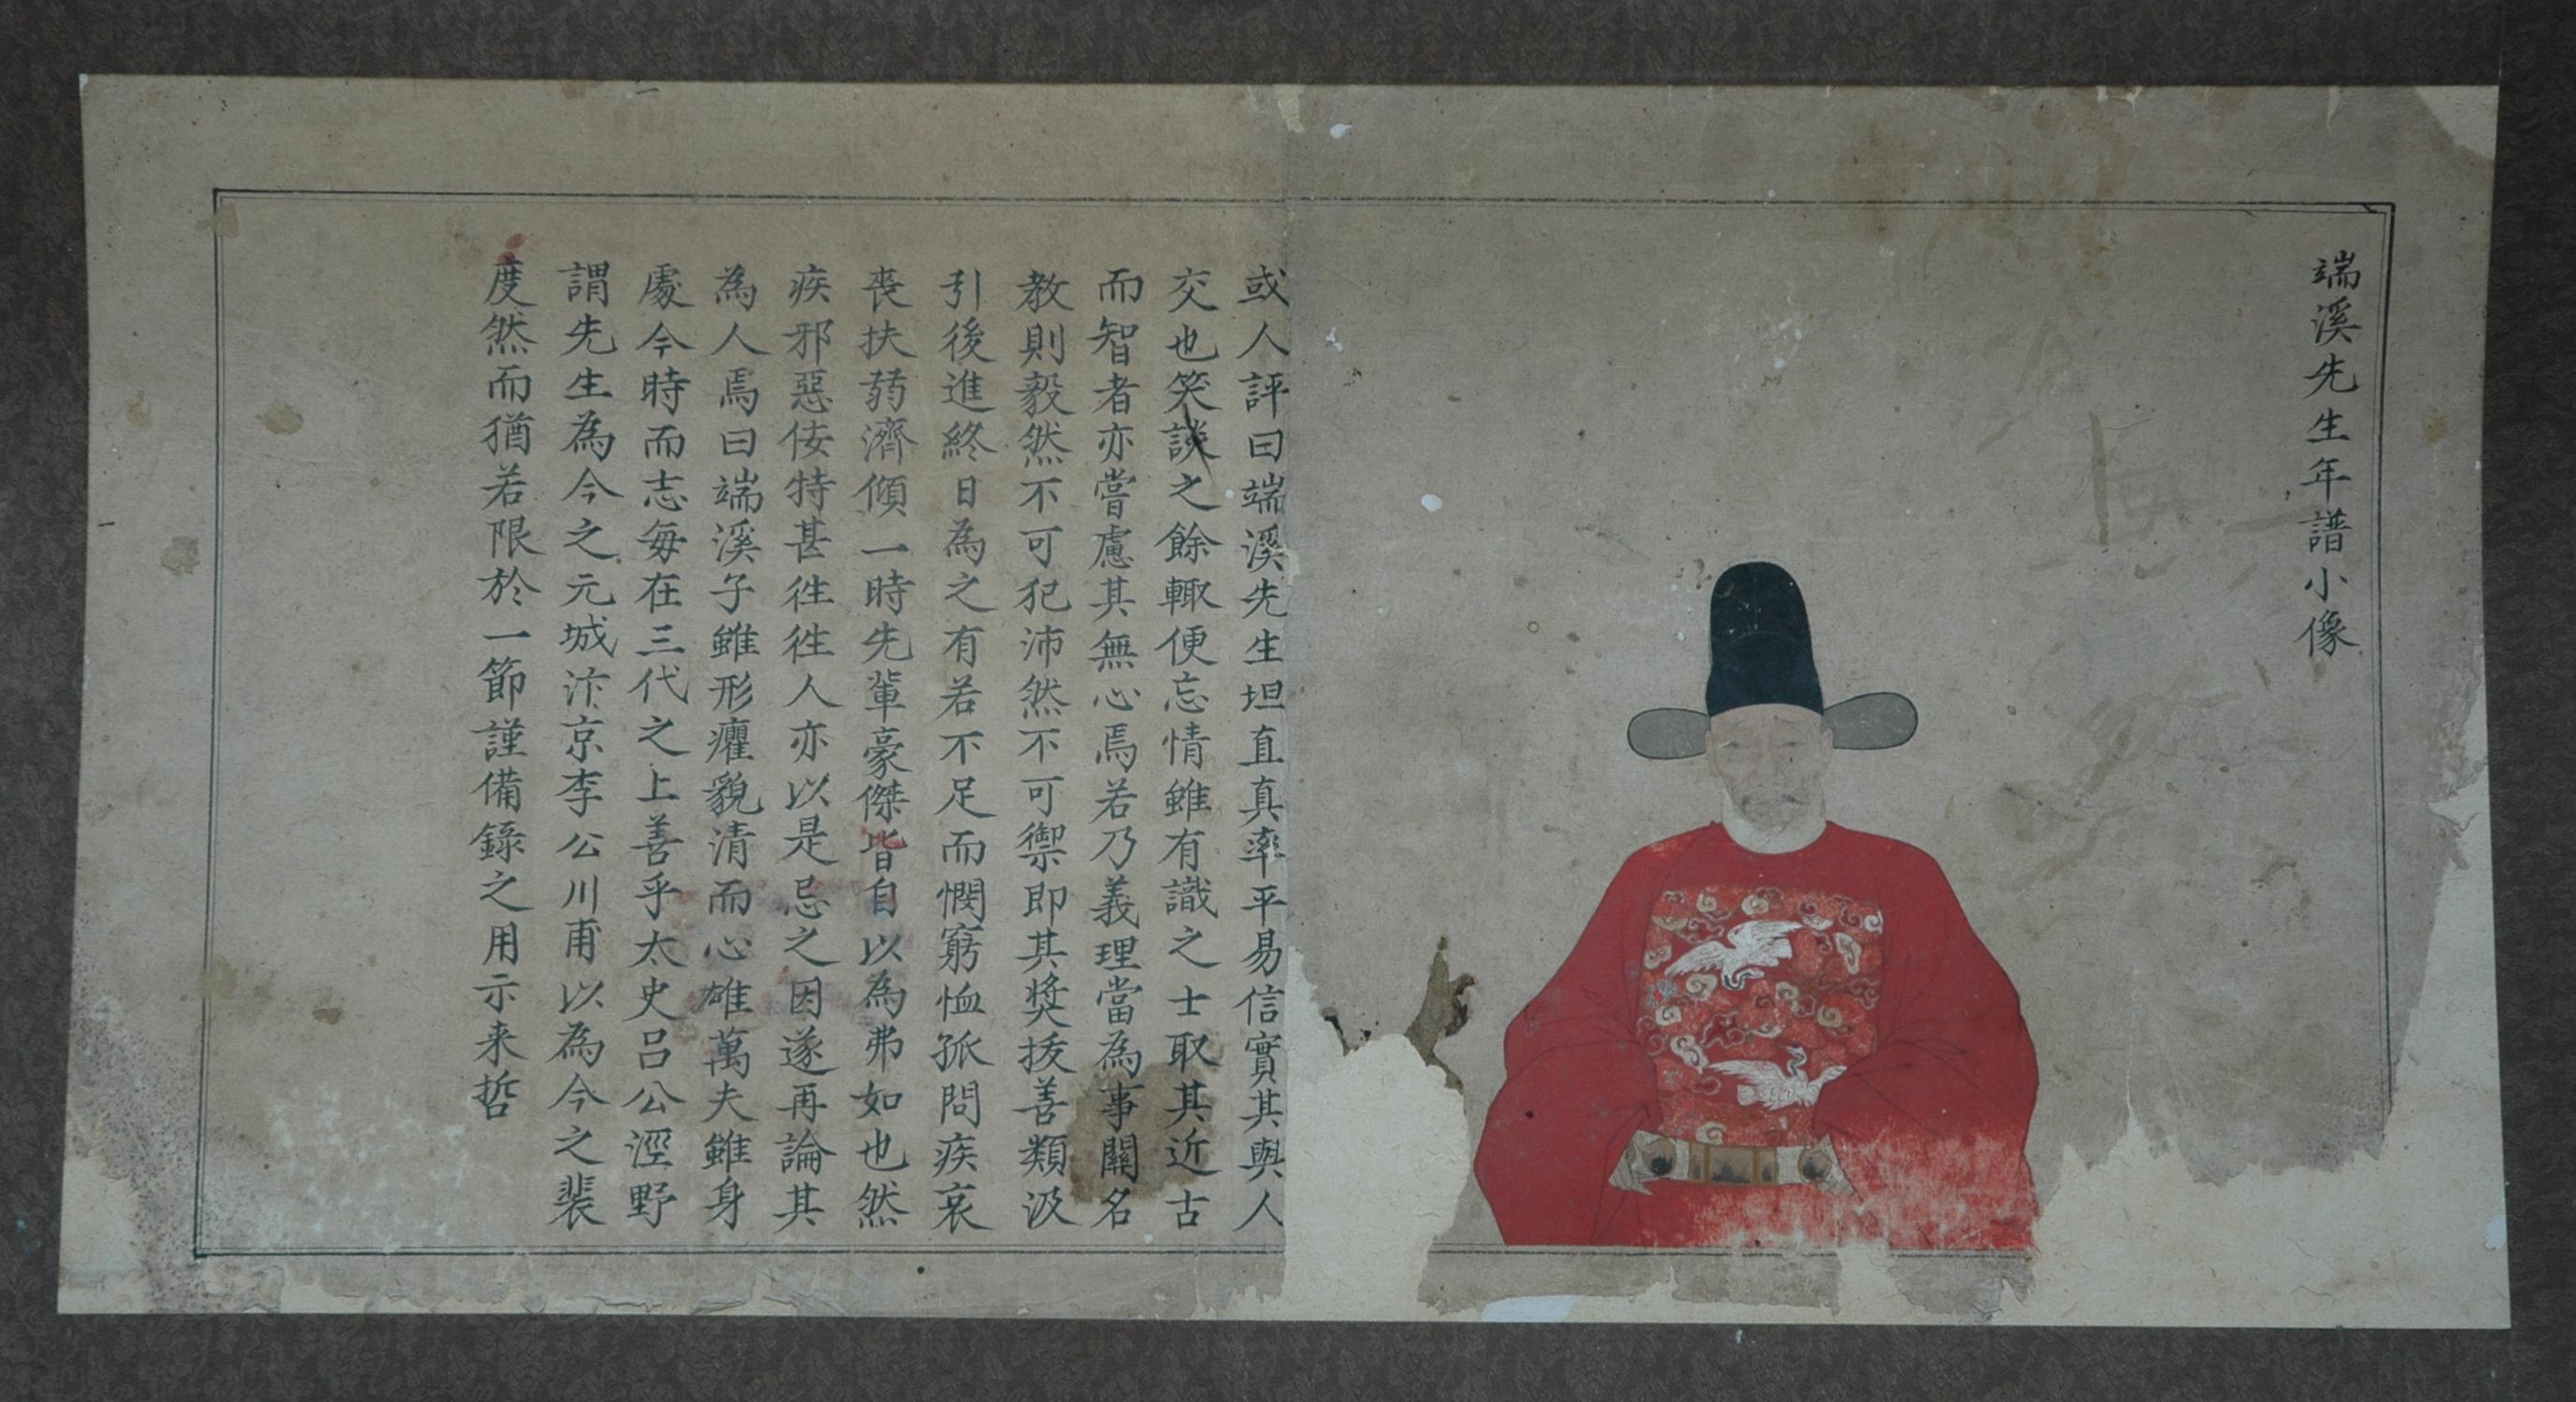 端溪先生年譜小像
或人評曰端溪先生坦直真率平易信實其與人
交也笑談之餘輙便忘情雖有識之士取其近古
而智者亦嘗慮其無心焉若乃義理當為事關名
教則毅然不可犯沛然不可禦即其奬拔善類汲
引後進終日為之有若不足而憫窮恤孤問疾哀
喪扶弱濟傾一時先輩豪傑皆自以為弗如也然
疾邪惡佞特甚徃徃人亦以是忌之因遂再論其
為人焉曰端溪子雖形癯貌清而心雄萬夫雖身
處今時而志每在三代之上善乎太史呂公涇野
謂先生為今之元城汴京李公川甫以為今之裴
度然而猶若限於一節謹備錄之用示来哲